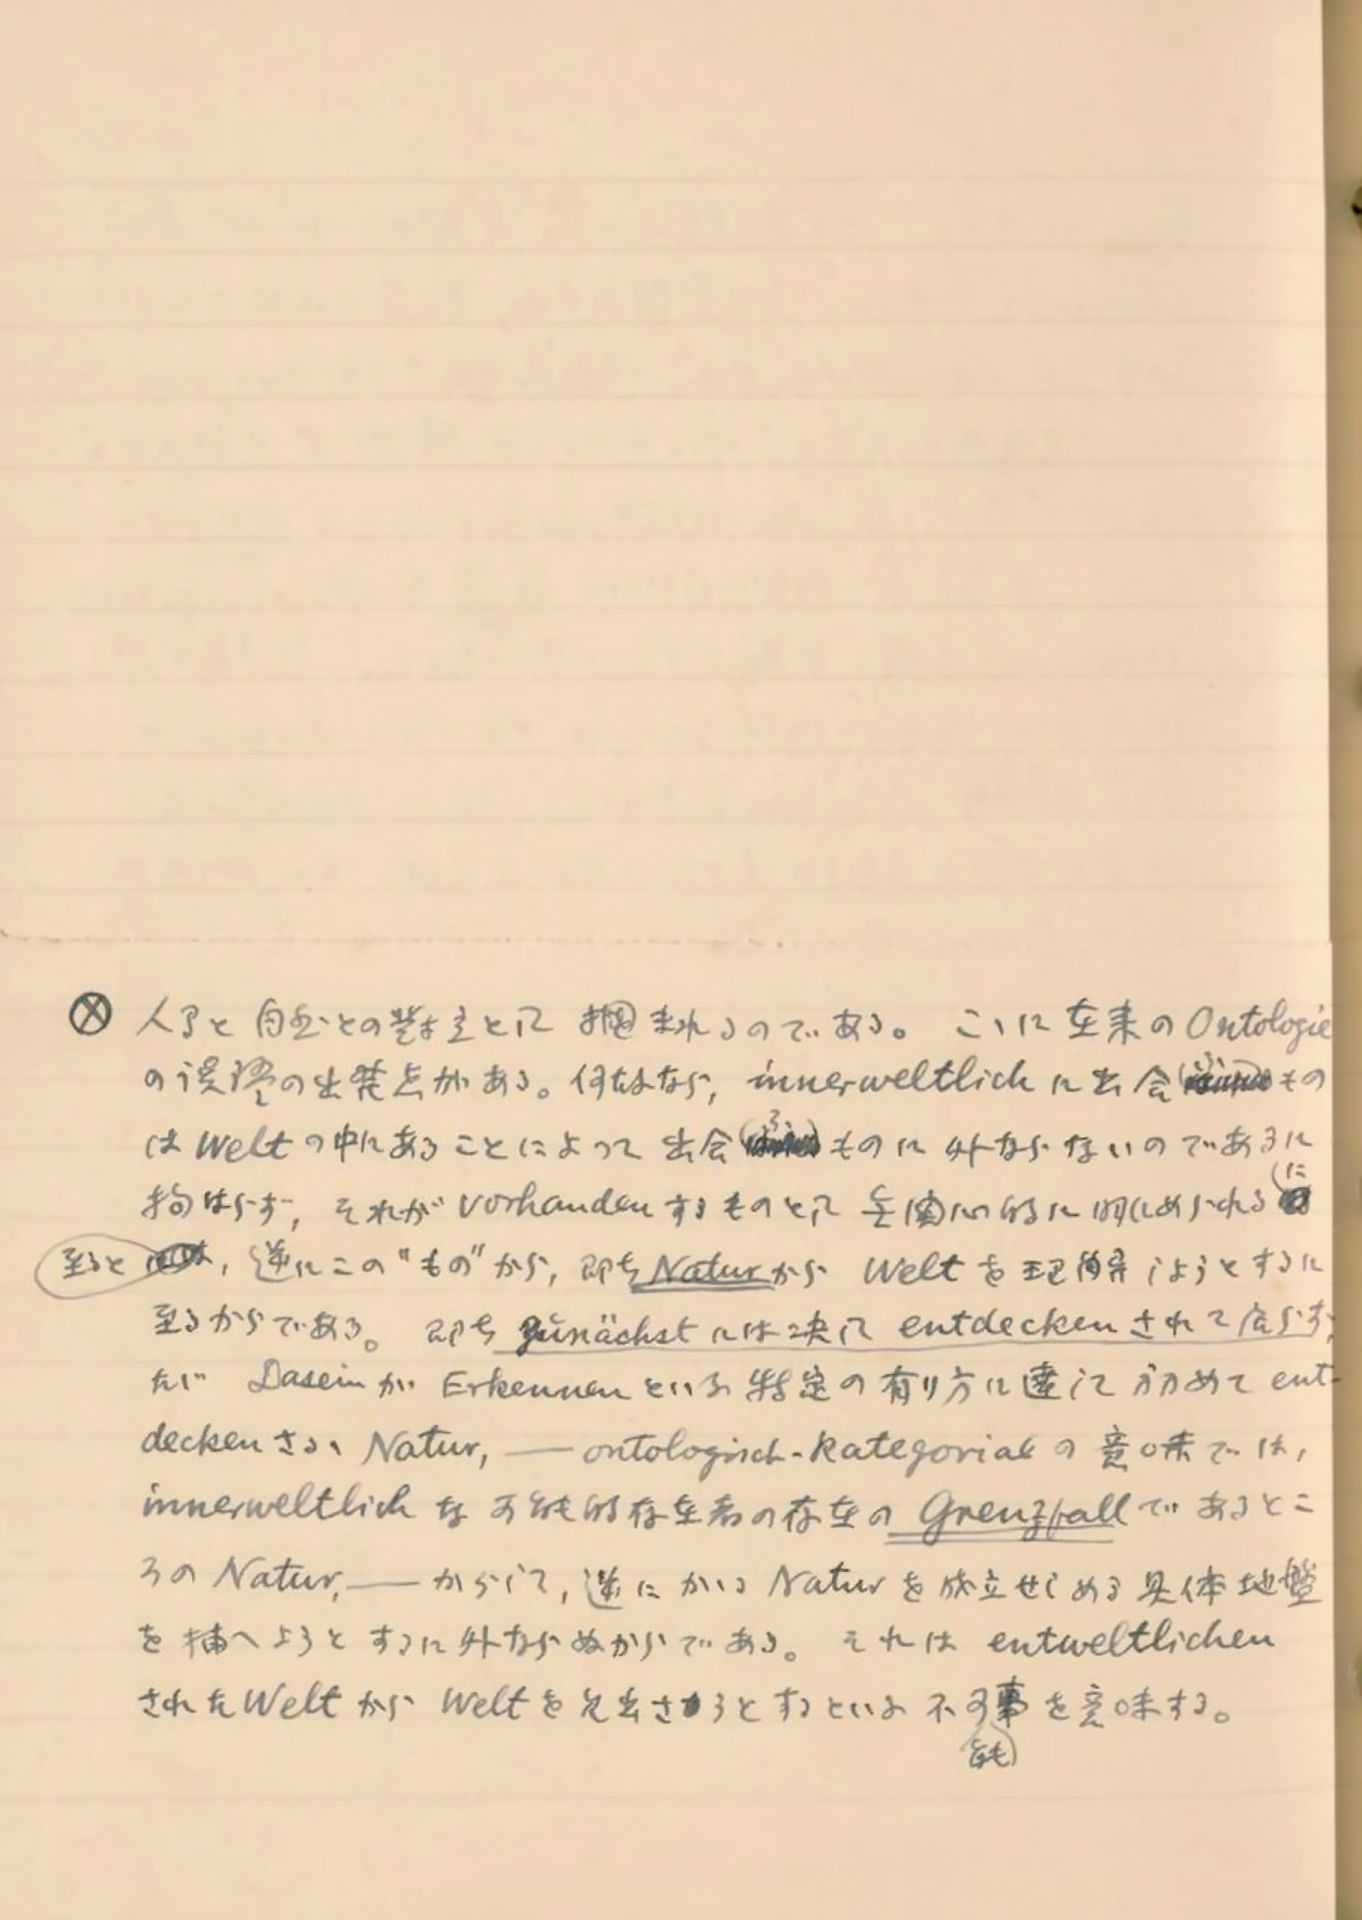 ⊗ 人間と自然との対立として掴まれるのである。 こゝに在来の Ontologie
の誤謬の出発点がある。何故なら, innerweltlich に出会ふもの
は Welt の中にあることによって出会ふものに外ならないのであるに
拘はらず, それが vorhanden するものとして無関心的に眺められるに
至ると, 逆にこの "もの" から, 即ち Natur から Welt を理解しようとするに
至るからである。 即ち zunächst には決して entdecken されて居らず,
たゞ Dasein が Erkennen といふ特定の有り方に達して初めて ent-
decken さるゝ Natur, — ontologisch-kategorial の意味では,
innerweltlich な可能的存在者の存在の Grenzfall であるとこ
ろの Natur, — からして, 逆にかゝる Natur を成立せしめる具体地盤
を捕へようとするに外ならぬからである。 それは entweltlichen
された Welt から Welt を見出さうとするといふ不可能事を意味する。